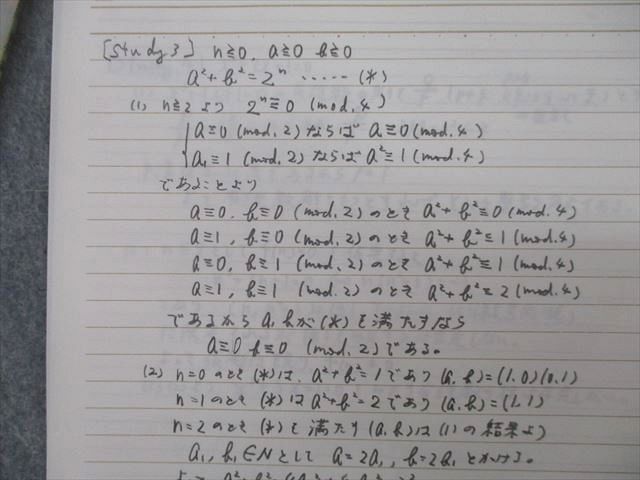 [Study 3] n≧0, a≧0 b≧0
a²+b²=2ⁿ ‥‥‥ (*)
(1) n≧2より 2ⁿ≡0 (mod.4)
a≡0 (mod.2) ならば a²≡0 (mod.4)
a≡1 (mod.2) ならば a²≡1 (mod.4)
であることより
a≡0, b≡0 (mod.2) のとき a²+b²≡0 (mod.4)
a≡1, b≡0 (mod.2) のとき a²+b²≡1 (mod.4)
a≡0, b≡1 (mod.2) のとき a²+b²≡1 (mod.4)
a≡1, b≡1 (mod.2) のとき a²+b²≡2 (mod.4)
であるから a, bが(*)を満たすなら
a≡0 b≡0 (mod.2) である。
(2) n=0のとき (*)は, a²+b²=1であり (a,b)=(1,0)(0,1)
n=1のとき (*)は a²+b²=2であり (a,b)=(1,1)
n=2のとき (*)を満たす (a,b)は(1)の結果より
a₁, b₁∈Nとして a=2a₁, b=2b₁とかける。